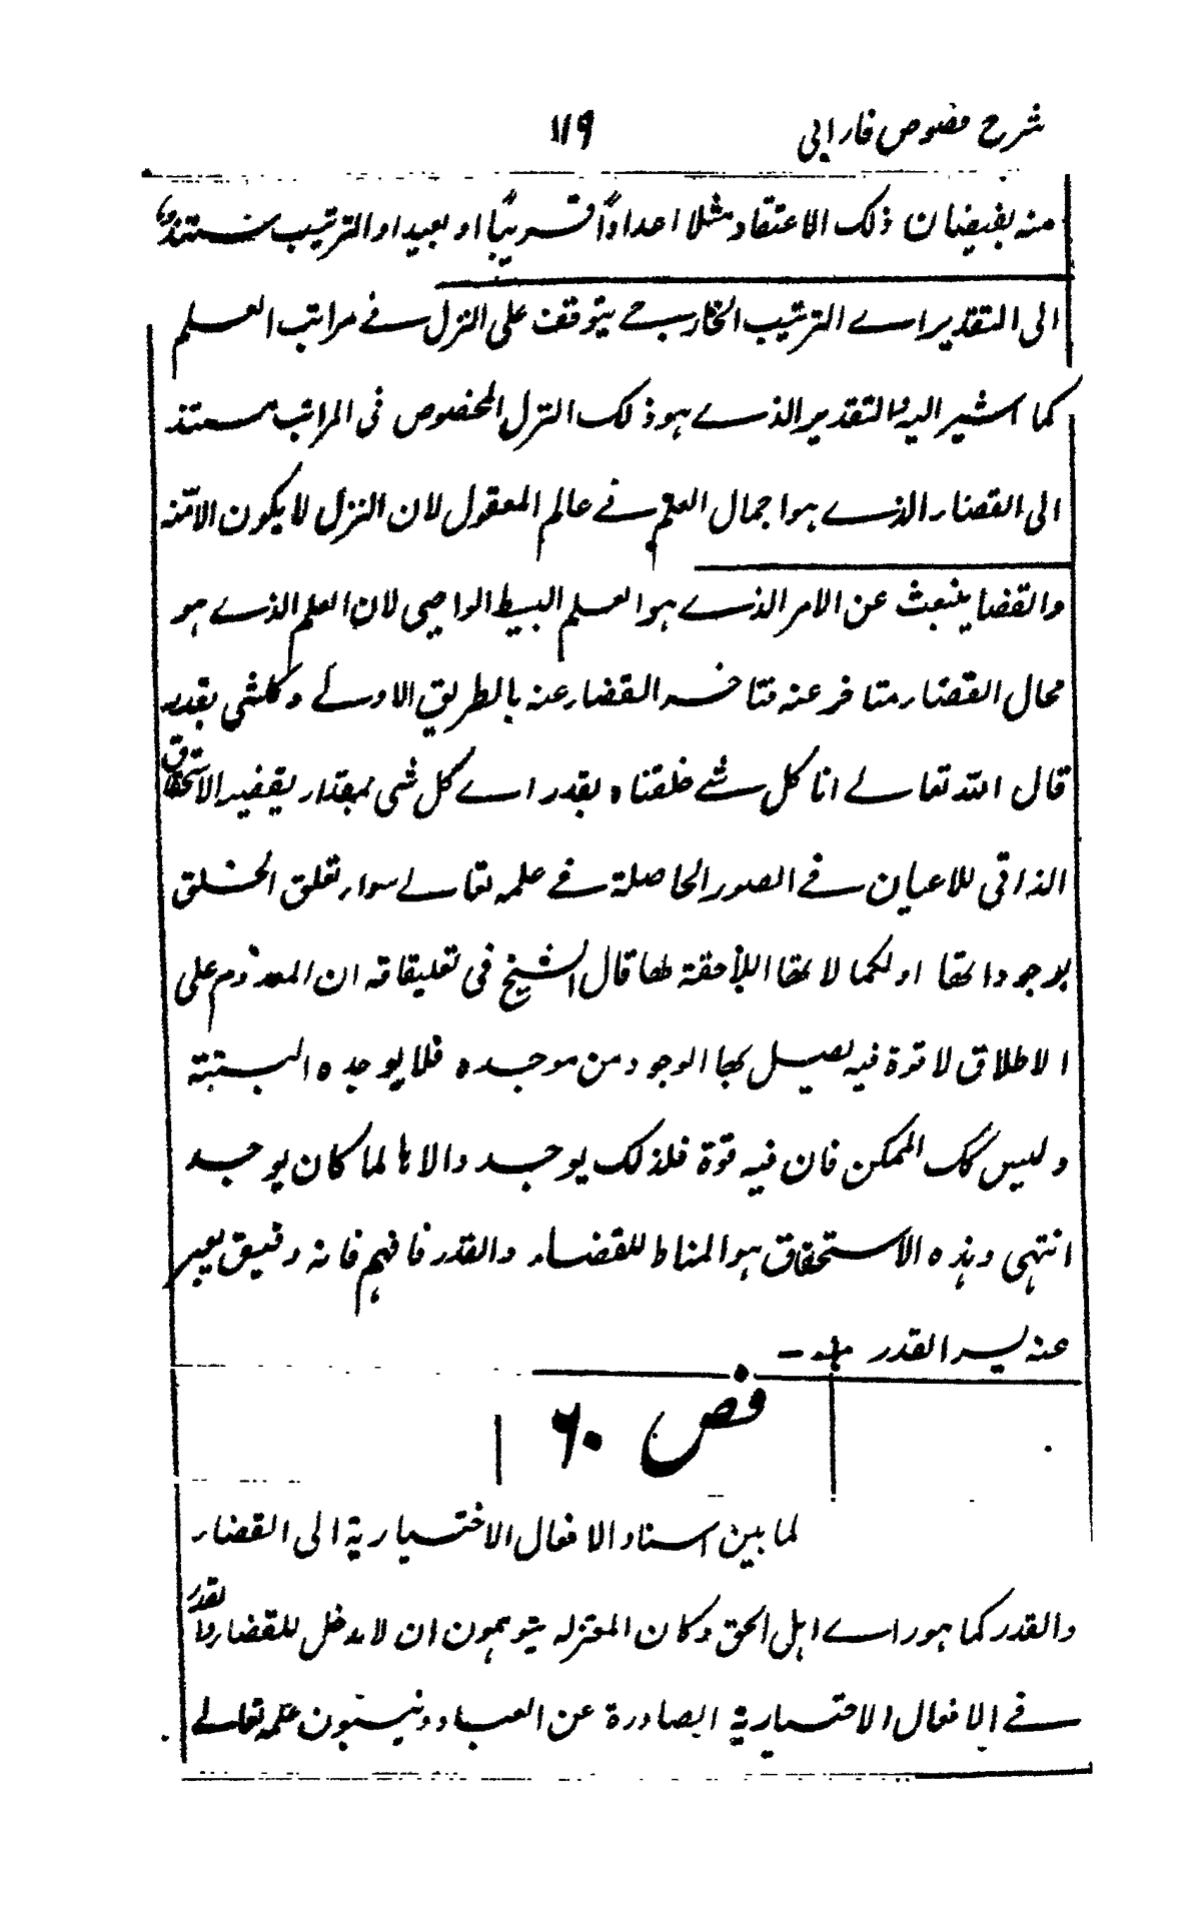 شرح فصوص فارابی ۱۱۹
منه بفيضان ذلك الاعتقاد مثلا اعدادًا قريبًا او بعيدا والترتيب يستند
الى التقدير اے الترتيب الخارجے يتوقف على التنزل فے مراتب العلم
كما اشير اليه والتقدير الذے هو ذلك التنزل المخصوص فى المراتب مستند
الى القضاء الذے هو اجمال العلم فے عالم المعقول لان التنزل لا يكون الا منه
والقضا ينبعث عن الامر الذے هو العلم البسيط الواجبى لان العلم الذے هو
محال القضاء متاخر عنه فتاخر القضاء عنه بالطريق الاولے وكل شى بقدر
قال الله تعالے انا كل شے خلقناه بقدر اے كل شى بمقدار يقتضيه الاستحقاق
الذاتى للاعيان فے الصور الحاصلة فے علمه تعالے سواء تعلق الخلق
بوجوداتها او لكمالاتها اللاحقة لها قال الشيخ فى تعليقاته ان المعدوم على
الاطلاق لا قوة فيه يصيل بها الوجود من موجده فلا يوجده البتة
وليس كك الممكن فان فيه قوة فلذلك يوجد والا ها لما كان يوجد
انتهى وهذه الاستحقاق هو المناط للقضاء والقدر فافهم فانه دقيق يعبر
عنه بسر القدر
فص ۶۰
لما بين اسناد الافعال الاختيارية الى القضاء
والقدر كما هو راے اهل الحق وكان المعتزله يتوهمون ان لا مدخل للقضاء والقدر
فے الافعال الاختيارية الصادرة عن العباد وينسبون علمه تعالے